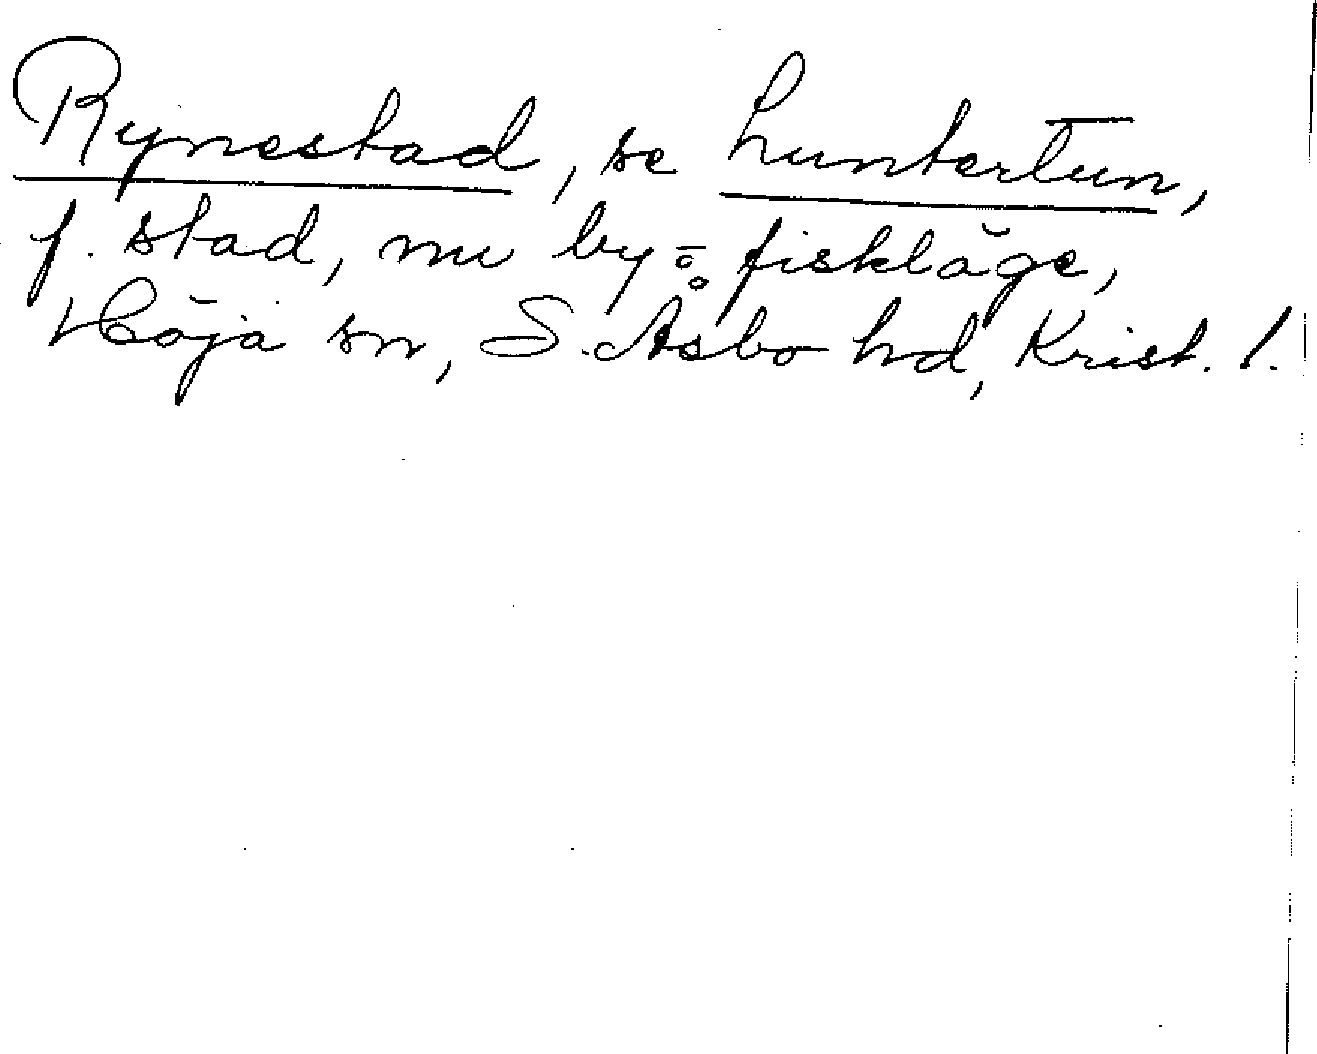 Rynestad, se Luntertun,
f. stad, nu by o. fiskläge,
Höja sn, S. Åsbo hd, Krist. l.